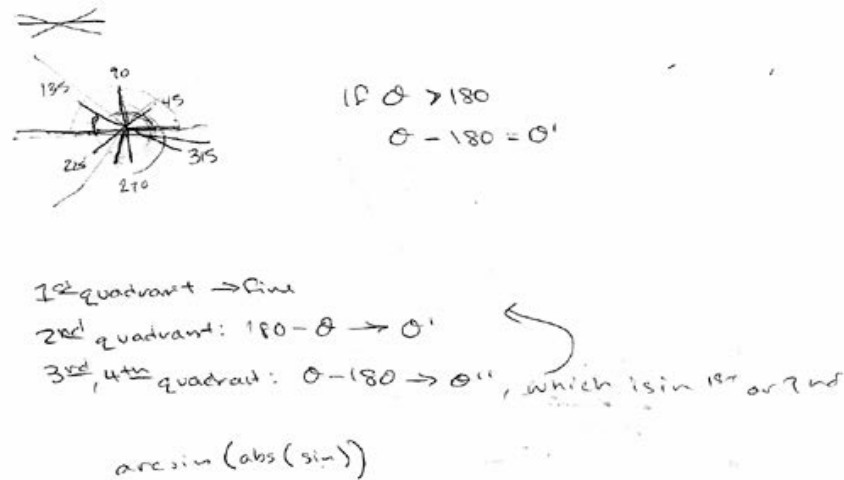 90
135
45
225
315
270
if θ > 180
θ - 180 = θ'
1st quadrant → fine
2nd quadrant: 180 - θ → θ'
3rd, 4th quadrant: θ - 180 → θ'', which is in 1st or 2nd
arcsin (abs (sin))